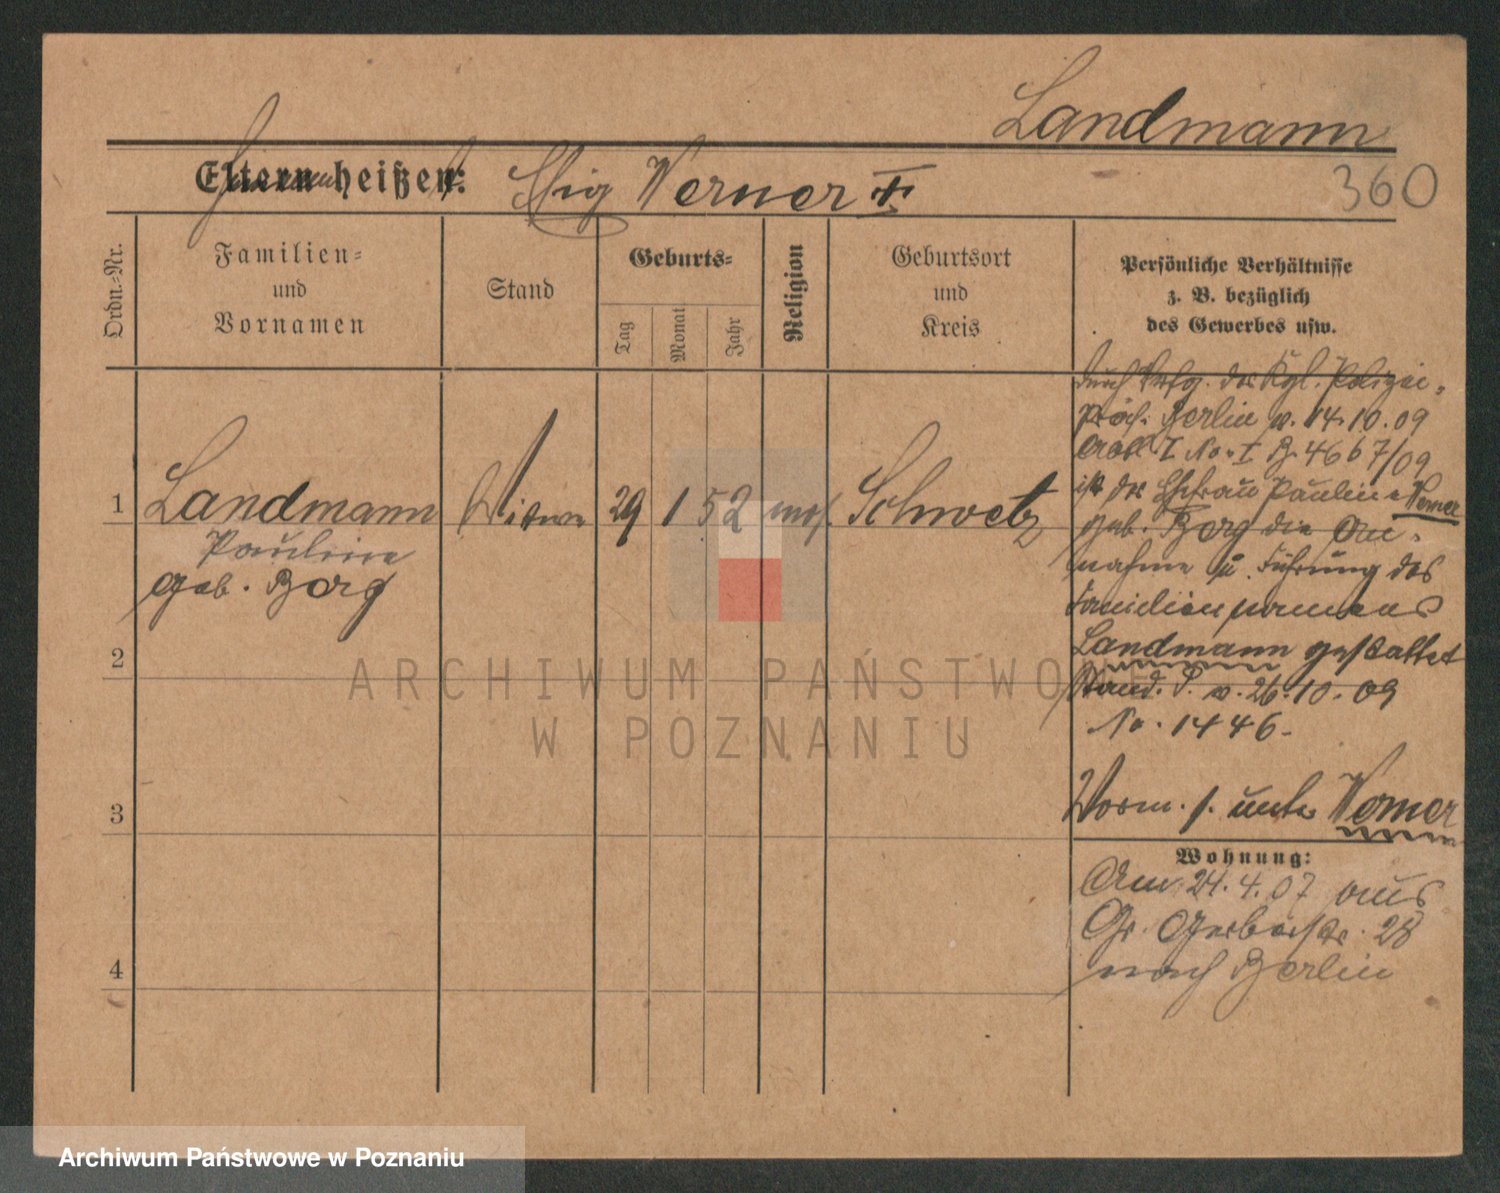 Landmann
360
Eltern heißen: Werner †
Ordn.-Nr.
Familien-
und
Vornamen
Stand
Geburts-
Tag
Monat
Jahr
Religion
Geburtsort
und
Kreis
Persönliche Verhältnisse
z. B. bezüglich
des Gewerbes usw.
1
Landmann
Pauline
geb. Borg
Witwe
29
1
52
mos.
Schwetz
2
3
4
durch Verfg. des Kgl. Polizei-
Präs. Berlin v. 14.10.09
I No. I B. 4667/09
ist der Ehefrau Pauline Werner
geb. Borg die An-
nahme u. Führung des
Familiennamens
Landmann gestattet
Stand. P. v. 26.10.09
No. 1446.
Vorm. s. unter Werner
Wohnung:
Am 24.4.07 aus
Gr. Gerberstr. 28
nach Berlin
ARCHIWUM PAŃSTWOWE
W POZNANIU
Archiwum Państwowe w Poznaniu